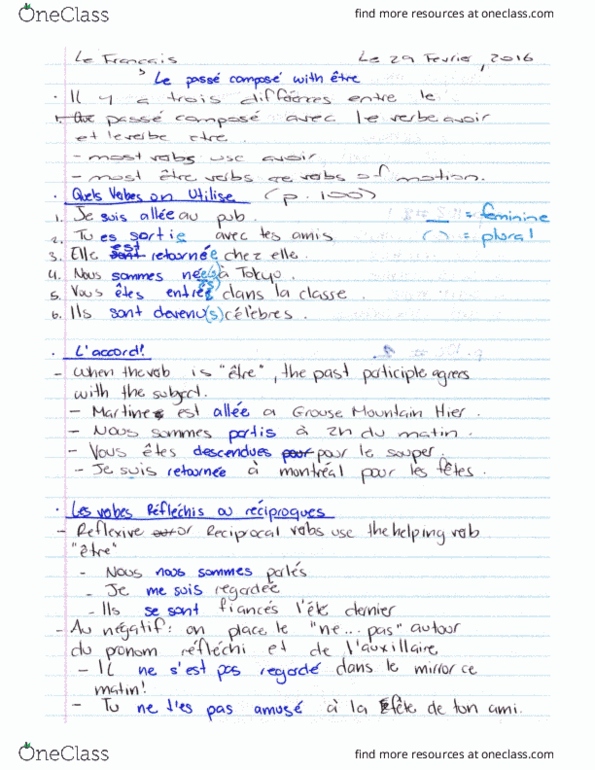 OneClass
find more resources at oneclass.com
Le Francais Le 29 Fevrier, 2016
Le passé composé with être
· Il y a trois différres entre le
1. Que passé composé avec le verbe avoir
et le verbe etre.
- most vobs use avoir
- most être verbs are verbs of motion.
· Quels Vobes on Utilise (p. 100)
1. Je suis allée au pub. __ = feminine
2. Tu es sortie avec tes amis ( ) = plural
3. Elle sont est retournée chez elle.
4. Nous sommes née(s) à Tokyo.
5. Vous êtes entrée(s) dans la classe.
6. Ils sont devenu(s) célèbres.
· L'accord!
- When the vob is "être", the past participle agrees
with the subject.
- Martine est allée a Grouse Mountain Hier.
- Nous sommes partis à 2h du matin.
- Vous êtes descendues pour pour le souper.
- Je suis retournée à montréal pour les fêtes.
· Les vobes Réflechis ou réciproques
- Reflexive or Reciprocal vobs use the helping vob
"être"
- Nous nous sommes parlés
- Je me suis regardée
- Ils se sont fiancés l'éte dernier
- Au négatif: on place le "ne... pas" autour
du pronom réfléchi et de l'auxillaire
- Il ne s'est pas regardé dans le mirror ce
matin!
- Tu ne t'es pas amusé à la fête de ton ami.
OneClass
find more resources at oneclass.com